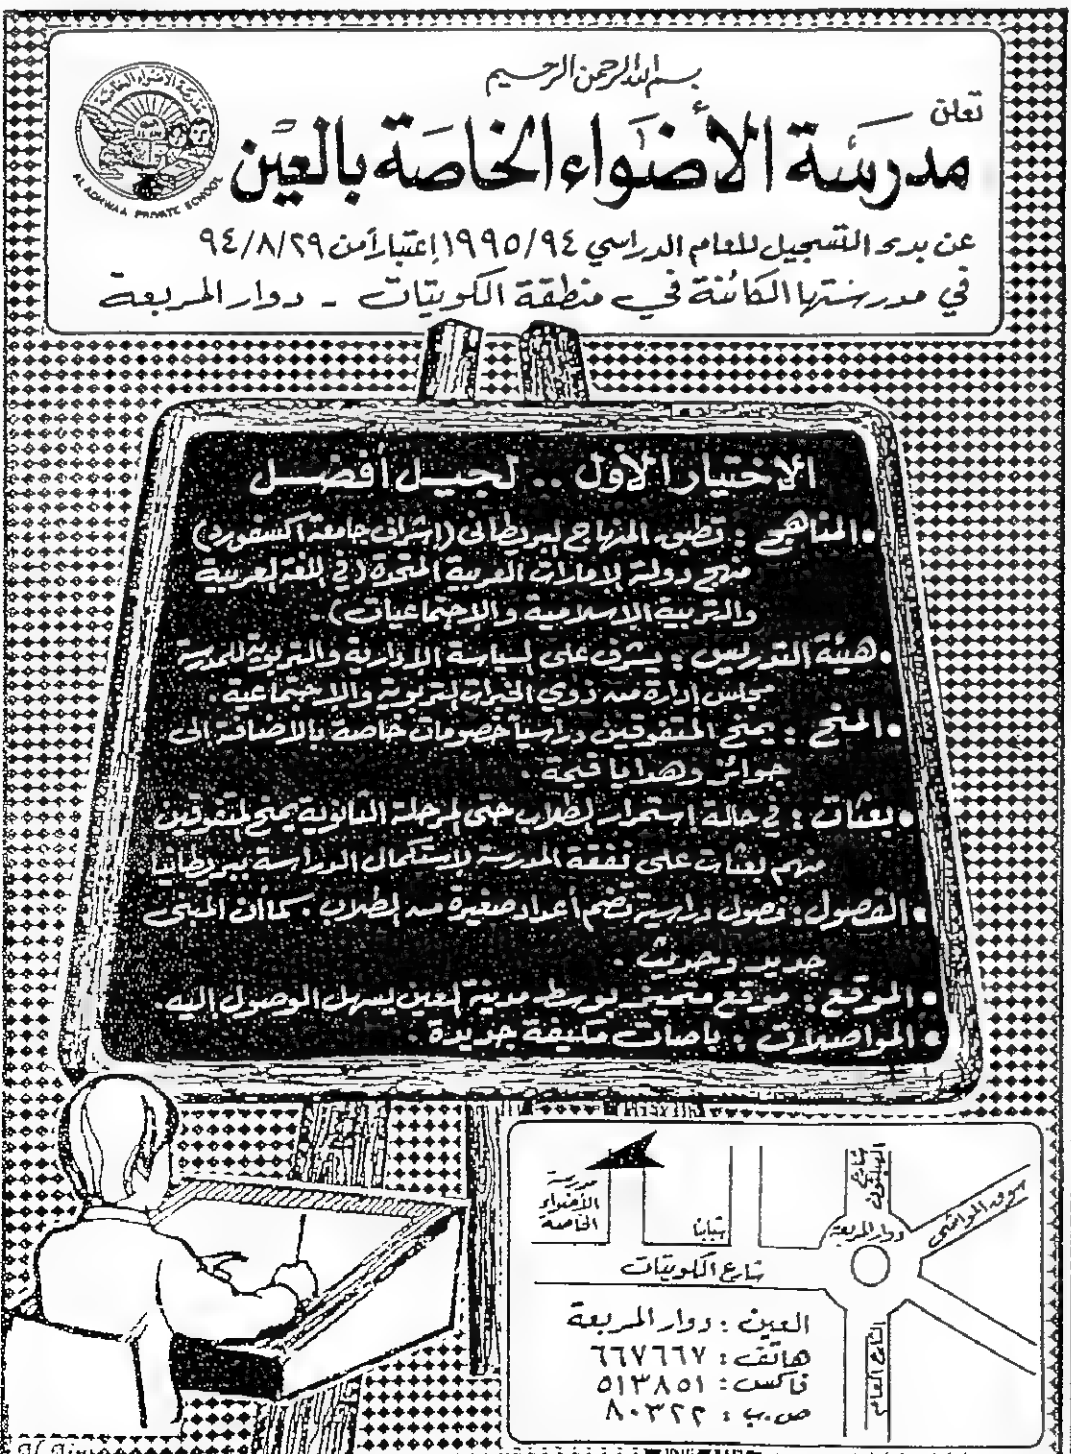 بسم الله الرحمن الرحيم
تعلن
مدرسة الأضواء الخاصة بالعين
عن بدء التسجيل للعام الدراسي ١٩٩٥/٩٤ إعتباراً من ٩٤/٨/٢٩
في مدرستها الكائنة في منطقة الكويتات - دوار المربعة
مدرسة الأضواء الخاصة
AL ADHWAA PRIVATE SCHOOL
الاختيار الأول .. لجيل أفضل
• المناهج : تطبق المنهاج البريطاني (اشراف جامعة اكسفورد)
منهج دولة الإمارات العربية المتحدة (في اللغة العربية
والتربية الإسلامية والإجتماعيات) .
• هيئة التدريس : يشرف على السياسة الإدارية والتربوية للمدرسة
مجلس إدارة من ذوي الخبرات التربوية والاجتماعية .
• المنح : يمنح المتفوقين دراسياً خصومات خاصة بالاضافة الى
جوائز وهدايا قيمة .
• بعثات : في حالة إستمرار الطلاب حتى المرحلة الثانوية يمنح المتفوقين
منهم بعثات على نفقة المدرسة لإستكمال الدراسة ببريطانيا
• الفصول : فصول دراسية تضم أعداد صغيرة من الطلاب . كما أن المبنى
جديد وحديث .
• الموقع : موقع متميز بوسط مدينة العين يسهل الوصول إليه .
• المواصلات : باصات مكيفة جديدة .
مدرسة
الأضواء
الخاصة
شارع
دوار المربعة
سوق المواشي
شارع الكويتات
الشارع العام
العين : دوار المربعة
هاتف : ٦٦٧٦٦٧
فاكس : ٥١٣٨٥١
ص.ب : ٨٠٣٢٢